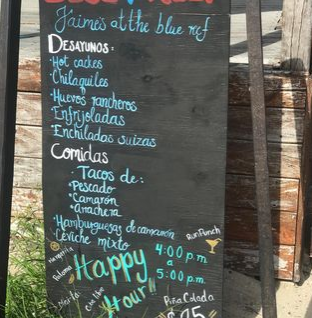 Jaime's at the blue reef
DESAYUNOS:
·Hot cackes
·Chilaquiles
·Huevos rancheros
·Enfrijoladas
·Enchiladas suizas
Comidas
·Tacos de:
*Pescado
*Camarón
*Arrachera
·Hamburguesas de camarón
·Ceviche mixto
Margarita
Paloma
Mojito
Cuba libre
Happy
Hour!!
Rum Punch
4:00 p.m
a
5:00 p.m.
Piña Colada